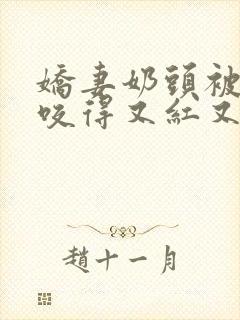 嬌妻奶頭被
咬得又紅又
趙十一月